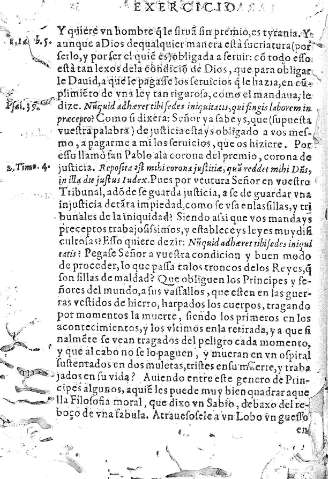 EXERCICIO
Y quiere vn hombre q̃ le sirua sin premio, es tyrania. Y
aunque a Dios de qualquier manera està su criatura (por
serlo, y por ser el quiē es) obligada a seruir: cō todo esso
està tan lexos dela cōdiciō de Dios, que para obligar
le Dauid, a que le pagasse los seruicios q̃ le hazia, en cū
plimiēto de vna ley tan rigurosa, como el mandaua, le
dize. Nũquid adhæret tibi sedes iniquitatis, qui fingis laborem in
Psal. 93.
præcepto? Como si dixera: Señor ya sabeys, que (supuesta
vuestra palabra) de justicia estays obligado a vos mes-
mo, a pagarme a mi los seruicios, que os hiziere. Por
esso llamò san Pablo ala corona del premio, corona de
2. Timo. 4.
justicia. Reposita est mihi corona justitiæ, quā reddet mihi Dñs,
in illa die justus iudex. Pues por vētura Señor en vuestro
Tribunal, adōde se guarda justicia, a se de guardar vna
injusticia de tāta impiedad, como se vsa enlas sillas, y tri
bunales de la iniquidad? Siendo assi que vos mandays
preceptos trabajosissimos, y estableceys leyes muy difi
cultosas? Esso quiere dezir: Nũquid adhæret tibi sedes iniqui
tatis? Pegase Señor a vuestra condicion y buen modo
de proceder, lo que passa enlos troncos delos Reyes, q̃
son sillas de maldad? Que obliguen los Principes y se-
ñores del mundo, a sus vassallos, que esten en las guer-
ras vestidos de hierro, harpados los cuerpos, tragando
por momentos la muerte, siendo los primeros en los
acontecimientos, y los vltimos en la retirada, y a que si
nalmēte se vean tragados del peligro cada momento,
y que al cabo no se lo paguen, y mueran en vn ospital
sustentados en dos muletas, tristes en su muerte, y traba
jados en su vida? Auiendo entre este genero de Prin-
cipes algunos, a quiē les puede muy bien quadrar aque
lla Filosofia moral, que dixo vn Sabio, debaxo del re-
boço de vna fabula. Atrauesosele a vn Lobo vn guesso
en